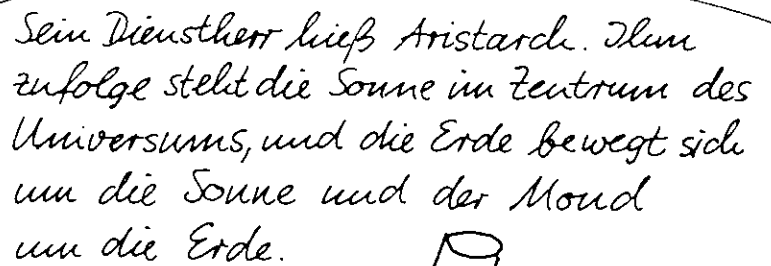 Sein Dienstherr hieß Aristarch. Ihm
zufolge steht die Sonne im Zentrum des
Universums, und die Erde bewegt sich
um die Sonne und der Mond
um die Erde.